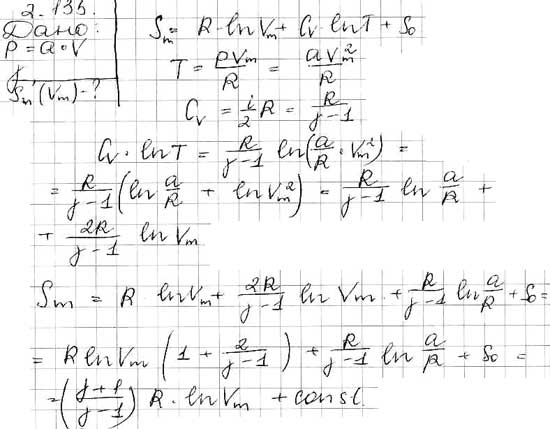 2.135.
Дано:
P = a·V
γ
Sm(Vm) - ?
Sm = R·lnVm + Cv·lnT + S0
T = pVm/R = aVm²/R
Cv = i/2 R = R/(γ-1)
Cv·lnT = R/(γ-1) ln(a/R · Vm²) =
= R/(γ-1) (ln a/R + lnVm²) = R/(γ-1) ln a/R +
+ 2R/(γ-1) lnVm
Sm = R lnVm + 2R/(γ-1) ln Vm + R/(γ-1) ln a/R + S0 =
= R lnVm (1 + 2/(γ-1)) + R/(γ-1) ln a/R + S0 =
= ((γ+1)/(γ-1)) R·lnVm + const.